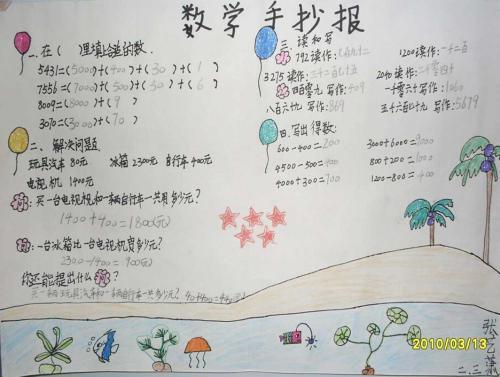 数学手抄报
一.在( )里填上合适的数.
5431=(5000)+(400)+(30)+(1)
7556=(7000)+(500)+(50)+(6)
8009=(8000)+(9)
3070=(3000)+(70)
二、解决问题
玩具汽车 80元 冰箱 2300元 自行车 400元
电视机 1400元
:买一台电视机和一辆自行车一共用多少元?
1400+400=1800(元)
:一台冰箱比一台电视机贵多少元?
2300-1400=900(元)
你还能提出什么 ?
买一辆玩具汽车和一辆自行车一共多少元?
三.读和写
792读作:七百九十二 1200读作:一千二百
3275读作:三千二百七十五 2040读作:二千零四十
四百零九 写作:409 一千零六十 写作:1060
八百六十九 写作:869 五千六百七十九 写作:5679
四.写出得数:
600-400=200 3000+6000=9000
4500-500=4000 800+200=1000
4000+300=4300 1200-800=400
2010/03/13
二.三